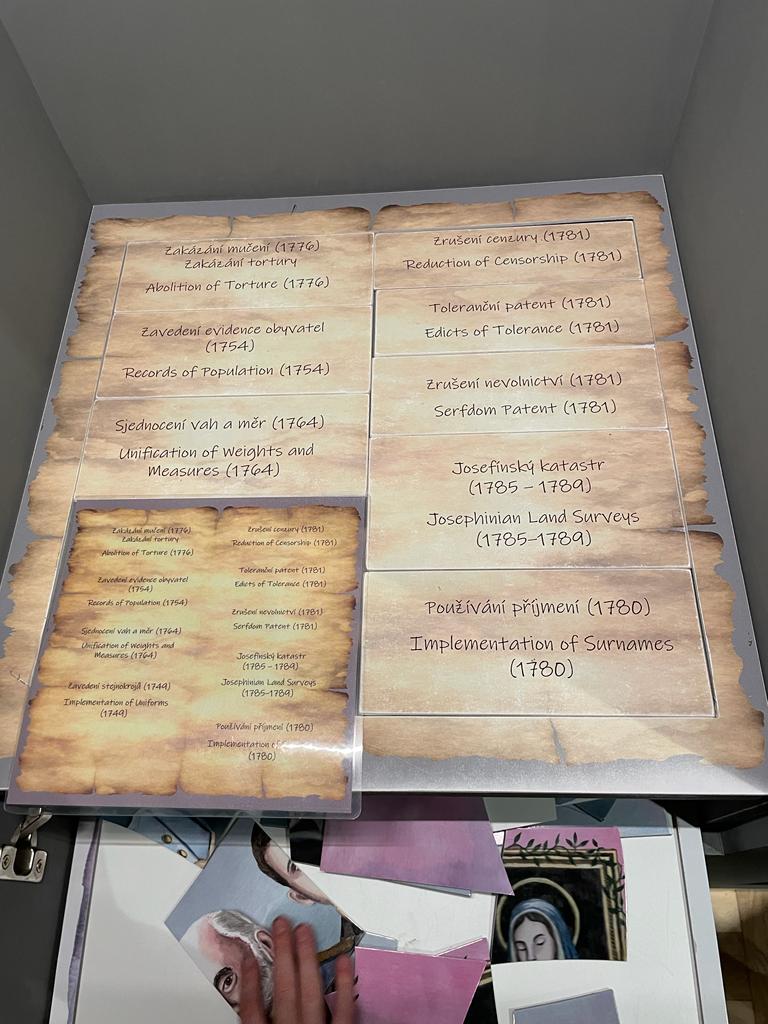 Zakázání mučení (1776)
Zakázání tortury
Abolition of Torture (1776)
Zavedení evidence obyvatel
(1754)
Records of Population (1754)
Sjednocení vah a měr (1764)
Unification of Weights and
Measures (1764)
Zrušení cenzury (1781)
Reduction of Censorship (1781)
Toleranční patent (1781)
Edicts of Tolerance (1781)
Zrušení nevolnictví (1781)
Serfdom Patent (1781)
Josefínský katastr
(1785 – 1789)
Josephinian Land Surveys
(1785–1789)
Používání příjmení (1780)
Implementation of Surnames
(1780)
Zakázání mučení (1776)
Zakázání tortury
Abolition of Torture (1776)
Zavedení evidence obyvatel
(1754)
Records of Population (1754)
Sjednocení vah a měr (1764)
Unification of Weights and
Measures (1764)
Zavedení stejnokrojů (1749)
Implementation of Uniforms
(1749)
Zrušení cenzury (1781)
Reduction of Censorship (1781)
Toleranční patent (1781)
Edicts of Tolerance (1781)
Zrušení nevolnictví (1781)
Serfdom Patent (1781)
Josefínský katastr
(1785 – 1789)
Josephinian Land Surveys
(1785–1789)
Používání příjmení (1780)
Implementation of
(1780)